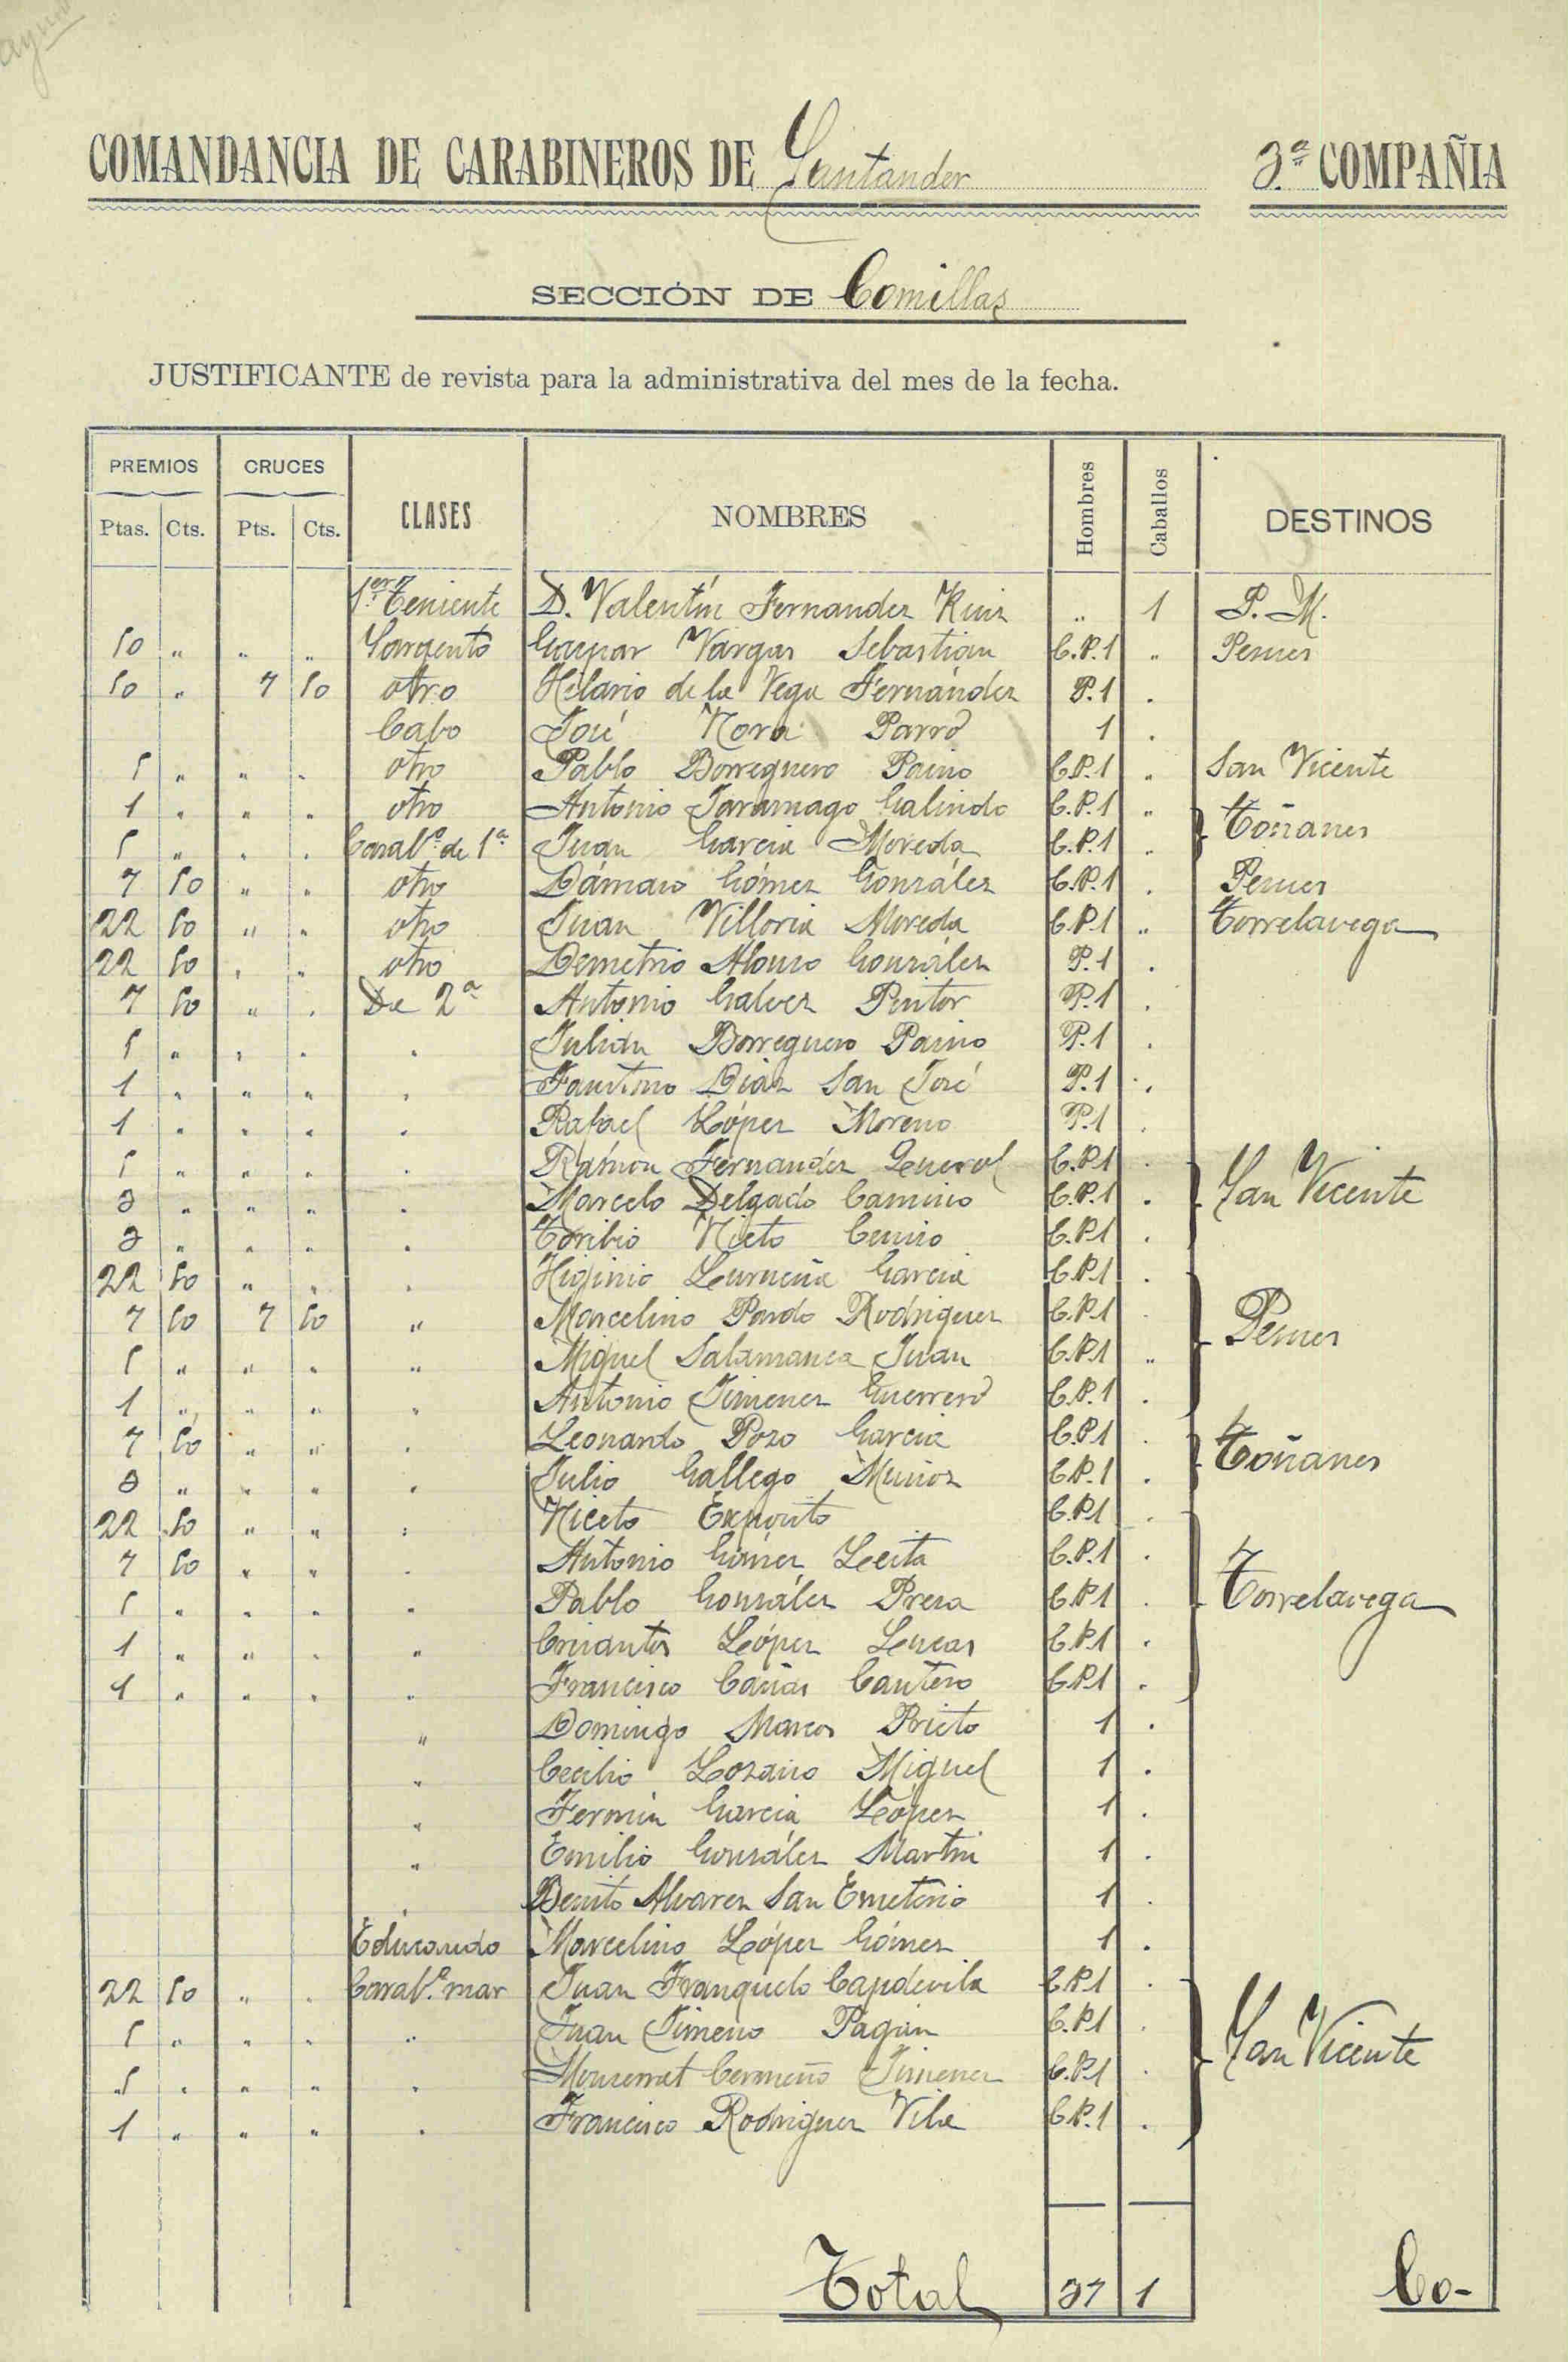 COMANDANCIA DE CARABINEROS DE Santander 3ª COMPAÑIA
SECCIÓN DE Comillas
JUSTIFICANTE de revista para la administrativa del mes de la fecha.
PREMIOS CRUCES CLASES NOMBRES Hombres Caballos DESTINOS
Ptas. Cts. Pts. Cts.
1er Teniente D. Valentín Fernandez Ruiz " 1 P. M.
50 " " " Sargento Gaspar Vargas Sebastian C.P.1 " Pesues
50 " 7 50 otro Hilario de la Vega Fernandez P.1 "
Cabo José Nora Parro 1 "
5 " " " otro Pablo Borreguero Paino C.P.1 " San Vicente
1 " " " otro Antonio Taramago Galindo C.P.1 " Toñanes
5 " " " Carabº de 1ª Juan Garcia Moreda C.P.1 "
7 50 " " otro Dámaso Gómez González C.P.1 " Pesues
22 50 " " otro Juan Villoria Moreda C.P.1 " Torrelavega
22 50 " " otro Demetrio Alonso González P.1 "
7 50 " " De 2ª Antonio Galvez Pintor P.1 "
5 " " " " Julián Borreguero Paino P.1 "
1 " " " " Faustino Diaz San José P.1 "
1 " " " " Rafael López Moreno P.1 "
5 " " " " Ramón Fernandez C.P.1 " San Vicente
3 " " " " Marcelo Delgado Camino C.P.1 "
3 " " " " Toribio Nieto C.P.1 "
22 50 " " " Higinio Lurueña Garcia C.P.1 " Pesues
7 50 7 50 " Marcelino Pardo Rodriguez C.P.1 "
5 " " " " Miguel Salamanca Juan C.P.1 "
1 " " " " Antonio Jimenez Guerrero C.P.1 "
7 50 " " " Leonardo Pozo Garcia C.P.1 " Toñanes
3 " " " " Julio Gallego Muñoz C.P.1 "
22 50 " " " Niceto Exposito C.P.1 " Torrelavega
7 50 " " " Antonio Gómez C.P.1 "
5 " " " " Pablo González Presa C.P.1 "
1 " " " " Crisantos López Lucas C.P.1 "
1 " " " " Francisco Cañas Cantero C.P.1 "
" Domingo Marcos Prieto 1 "
" Cecilio Lozano Miguel 1 "
" Fermin Garcia López 1 "
" Emilio González Martin 1 "
" Benito Alvarez San Emeterio 1 "
Educando Marcelino López Gómez 1 "
22 50 " " Carabº mar Juan Franquelo Capdevila C.P.1 " San Vicente
5 " " " " Juan Jimeno Pagán C.P.1 "
5 " " " " Monserrat Cermeño Jimenez C.P.1 "
1 " " " " Francisco Rodriguez Vila C.P.1 "
Total 37 1 Co-